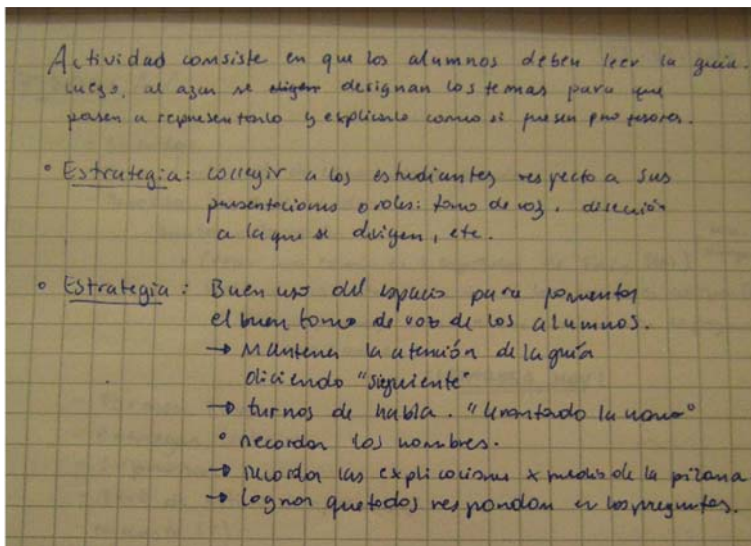 Actividad consiste en que los alumnos deben leer la guía.
luego, al azar se eligen designan los temas para que
pasen a representarlo y explicarlo como si fuesen profesores.
• Estrategia: corregir a los estudiantes respecto a sus
presentaciones orales: tono de voz, dirección
a la que se dirigen, etc.
• Estrategia: Buen uso del espacio para fomentar
el buen tono de voz de los alumnos.
→ Mantener la atención de la guía
diciendo "siguiente"
→ turnos de habla. "levantando la mano"
• recordar los nombres.
→ recordar las explicaciones x medio de la pizarra
→ Lograr que todos respondan en las preguntas.